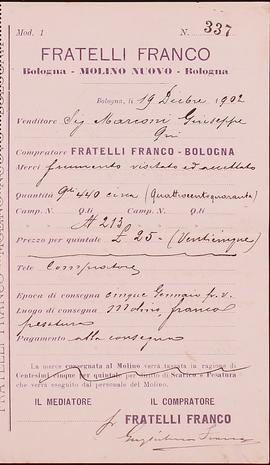 Mod. 1
N. 337
FRATELLI FRANCO
Bologna - MOLINO NUOVO - Bologna
Bologna, li 19 Decbre 1902
Venditore Sig Marconi Giuseppe
Qui
Compratore FRATELLI FRANCO - BOLOGNA
Merci frumento visitato ed accettato
Quantità Qli 440 circa (Quattrocentoquaranta)
Camp. N. Q.li Camp. N. Q.li
N 213
Prezzo per quintale £ 25 - (Venticinque)
Tele Compratore
Epoca di consegna cinque Gennaio p. v.
Luogo di consegna Molino, franco
pesatura
Pagamento alla consegna
La merce consegnata al Molino verrà tassata in ragione di
Centesimi cinque per quintale per diritto di Scarico e Pesatura
che verrà eseguito dal personale del Molino.
IL MEDIATORE IL COMPRATORE
p FRATELLI FRANCO
Guglielmo Franco